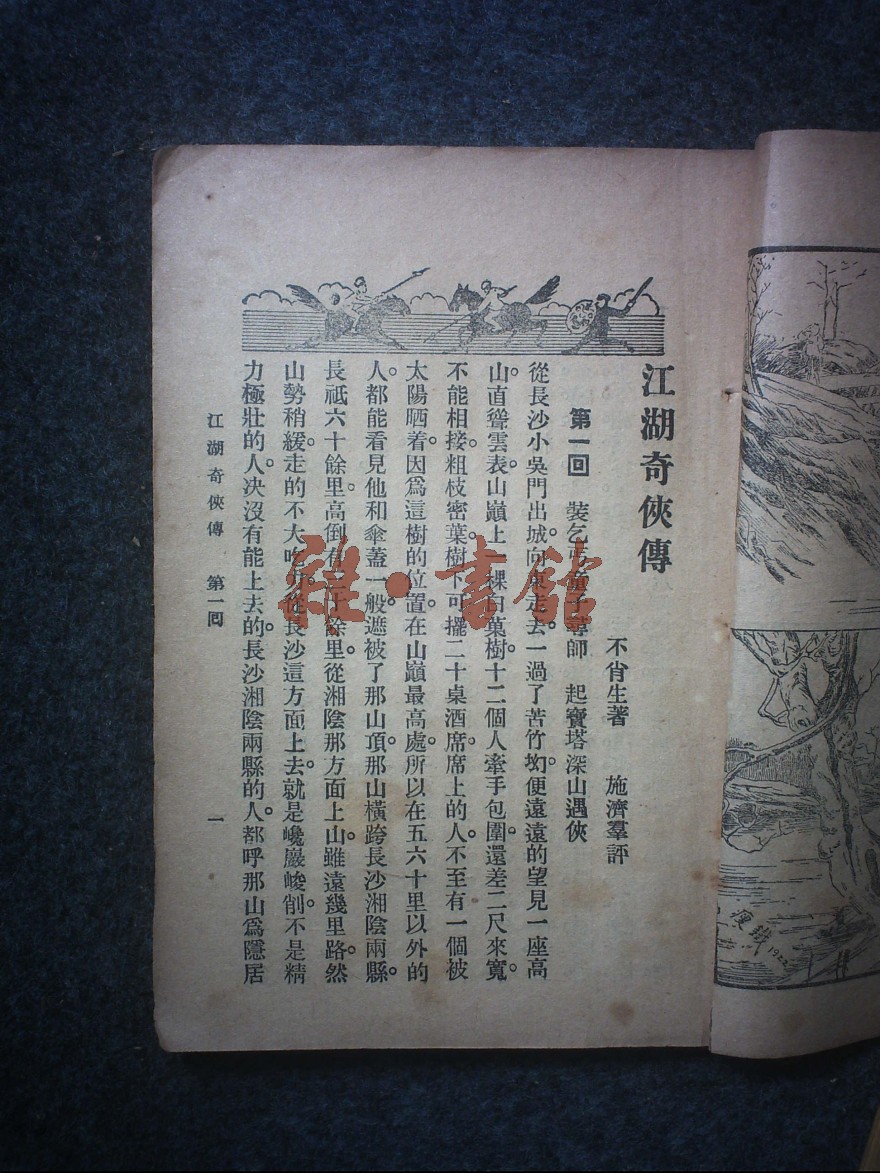 江湖奇俠傳
不肖生著 施濟羣評
第一回 裝乞丐童子尋師 起寶塔深山遇俠
從長沙小吳門出城。向東走去。一過了苦竹坳。便遠遠的望見一座高
山。直聳雲表。山巔上一棵白菓樹。十二個人牽手包圍。還差二尺來寬。
不能相接。粗枝密葉。樹下可擺二十桌酒席。席上的人。不至有一個被
太陽晒着。因爲這樹的位置。在山巔最高處。所以在五六十里以外的
人。都能看見他和傘蓋一般。遮被了那山頂。那山橫跨長沙湘陰兩縣。
長祇六十餘里。高倒有三十餘里。從湘陰那方面上山。雖遠幾里路。然
山勢稍緩。走的不大吃力。從長沙這方面上去。就是巉巖峻削。不是精
力極壯的人。決沒有能上去的。長沙湘陰兩縣的人。都呼那山爲隱居
江湖奇俠傳 第一回 一
雜·書館
瘦鐵
1922